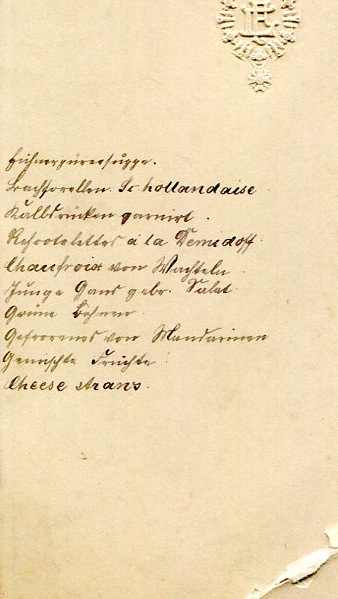 Hühnerpureesuppe.
Bachforellen. Sc hollandaise
Kalbsrücken garnirt.
Rehcotelettes à la Demidoff
Chaufroix von Wachteln
Junge Gans gebr. Salat.
Grüne Bohnen
Gefrorenes von Mandarinen
Gemischte Früchte
Cheese